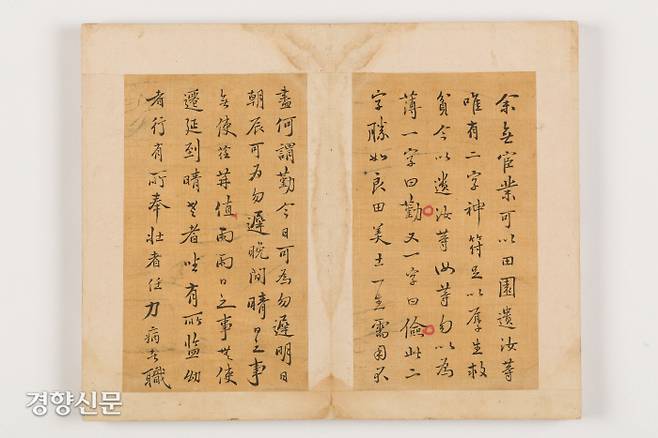 余無宦業可以田園遺汝等
唯有二字神符足以厚生救
貧今以遺汝等汝等勿以為
薄一字曰勤又一字曰儉此二
字勝如良田美土一生需用不
盡何謂勤今日可為勿遲明日
朝辰可為勿遲晚間晴日之事
無使荏苒值雨雨日之事無使
遷延到晴老者坐有所監幼
者行有所奉壯者任力病者職
경향신문